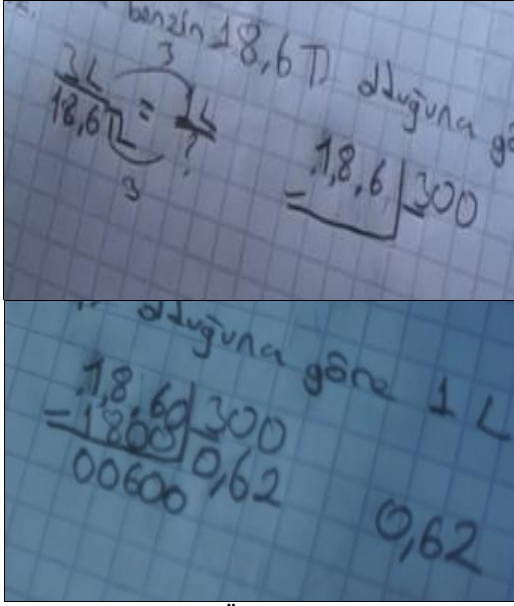 benzin 18,6 TL olduğuna gö
3
3L
18,6 TL
=
1L
?
3
18,6 | 300
olduğuna göre 1 L
18,60 | 300
- 1800
0,62
00600
0,62